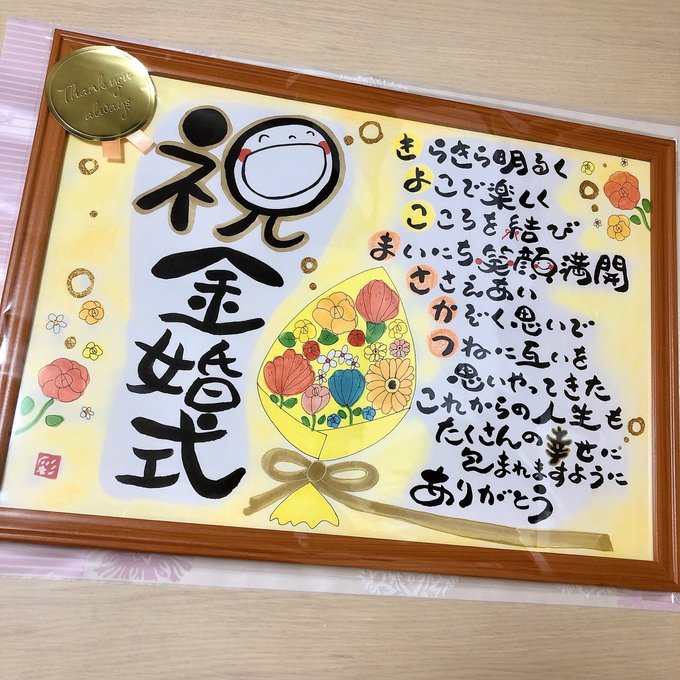 Thank you
always
祝
金婚式
きらきら明るく
よこで楽しく
こころを結び
まいにち笑顔満開
ささえあい
かぞく思いで
つねに互いを
思いやってきた
これからの人生も
たくさんの幸せに
包まれますように
ありがとう